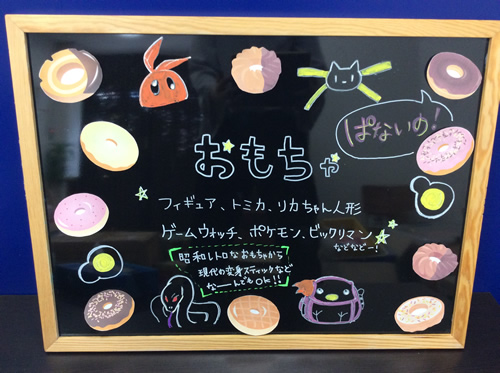 ぱないの！
おもちゃ
フィギュア、トミカ、リカちゃん人形
ゲームウォッチ、ポケモン、ビックリマン
などなどー！
昭和レトロなおもちゃから
現代の変身スティックなど
なーんでもOK!!